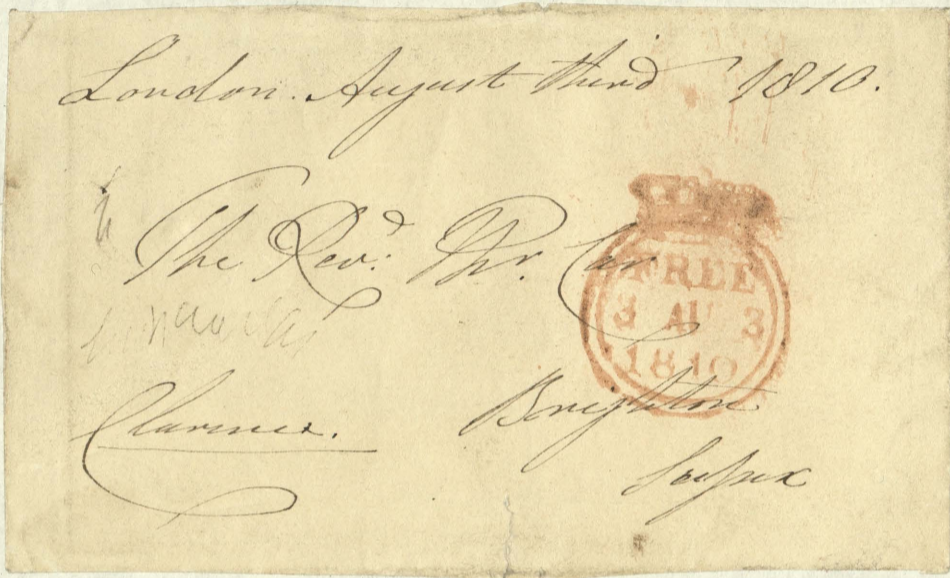 London. August third 1810.
The Revd. Mr. Car
FREE
3 AU 3
1810
Clarence.
Brighton
Sussex